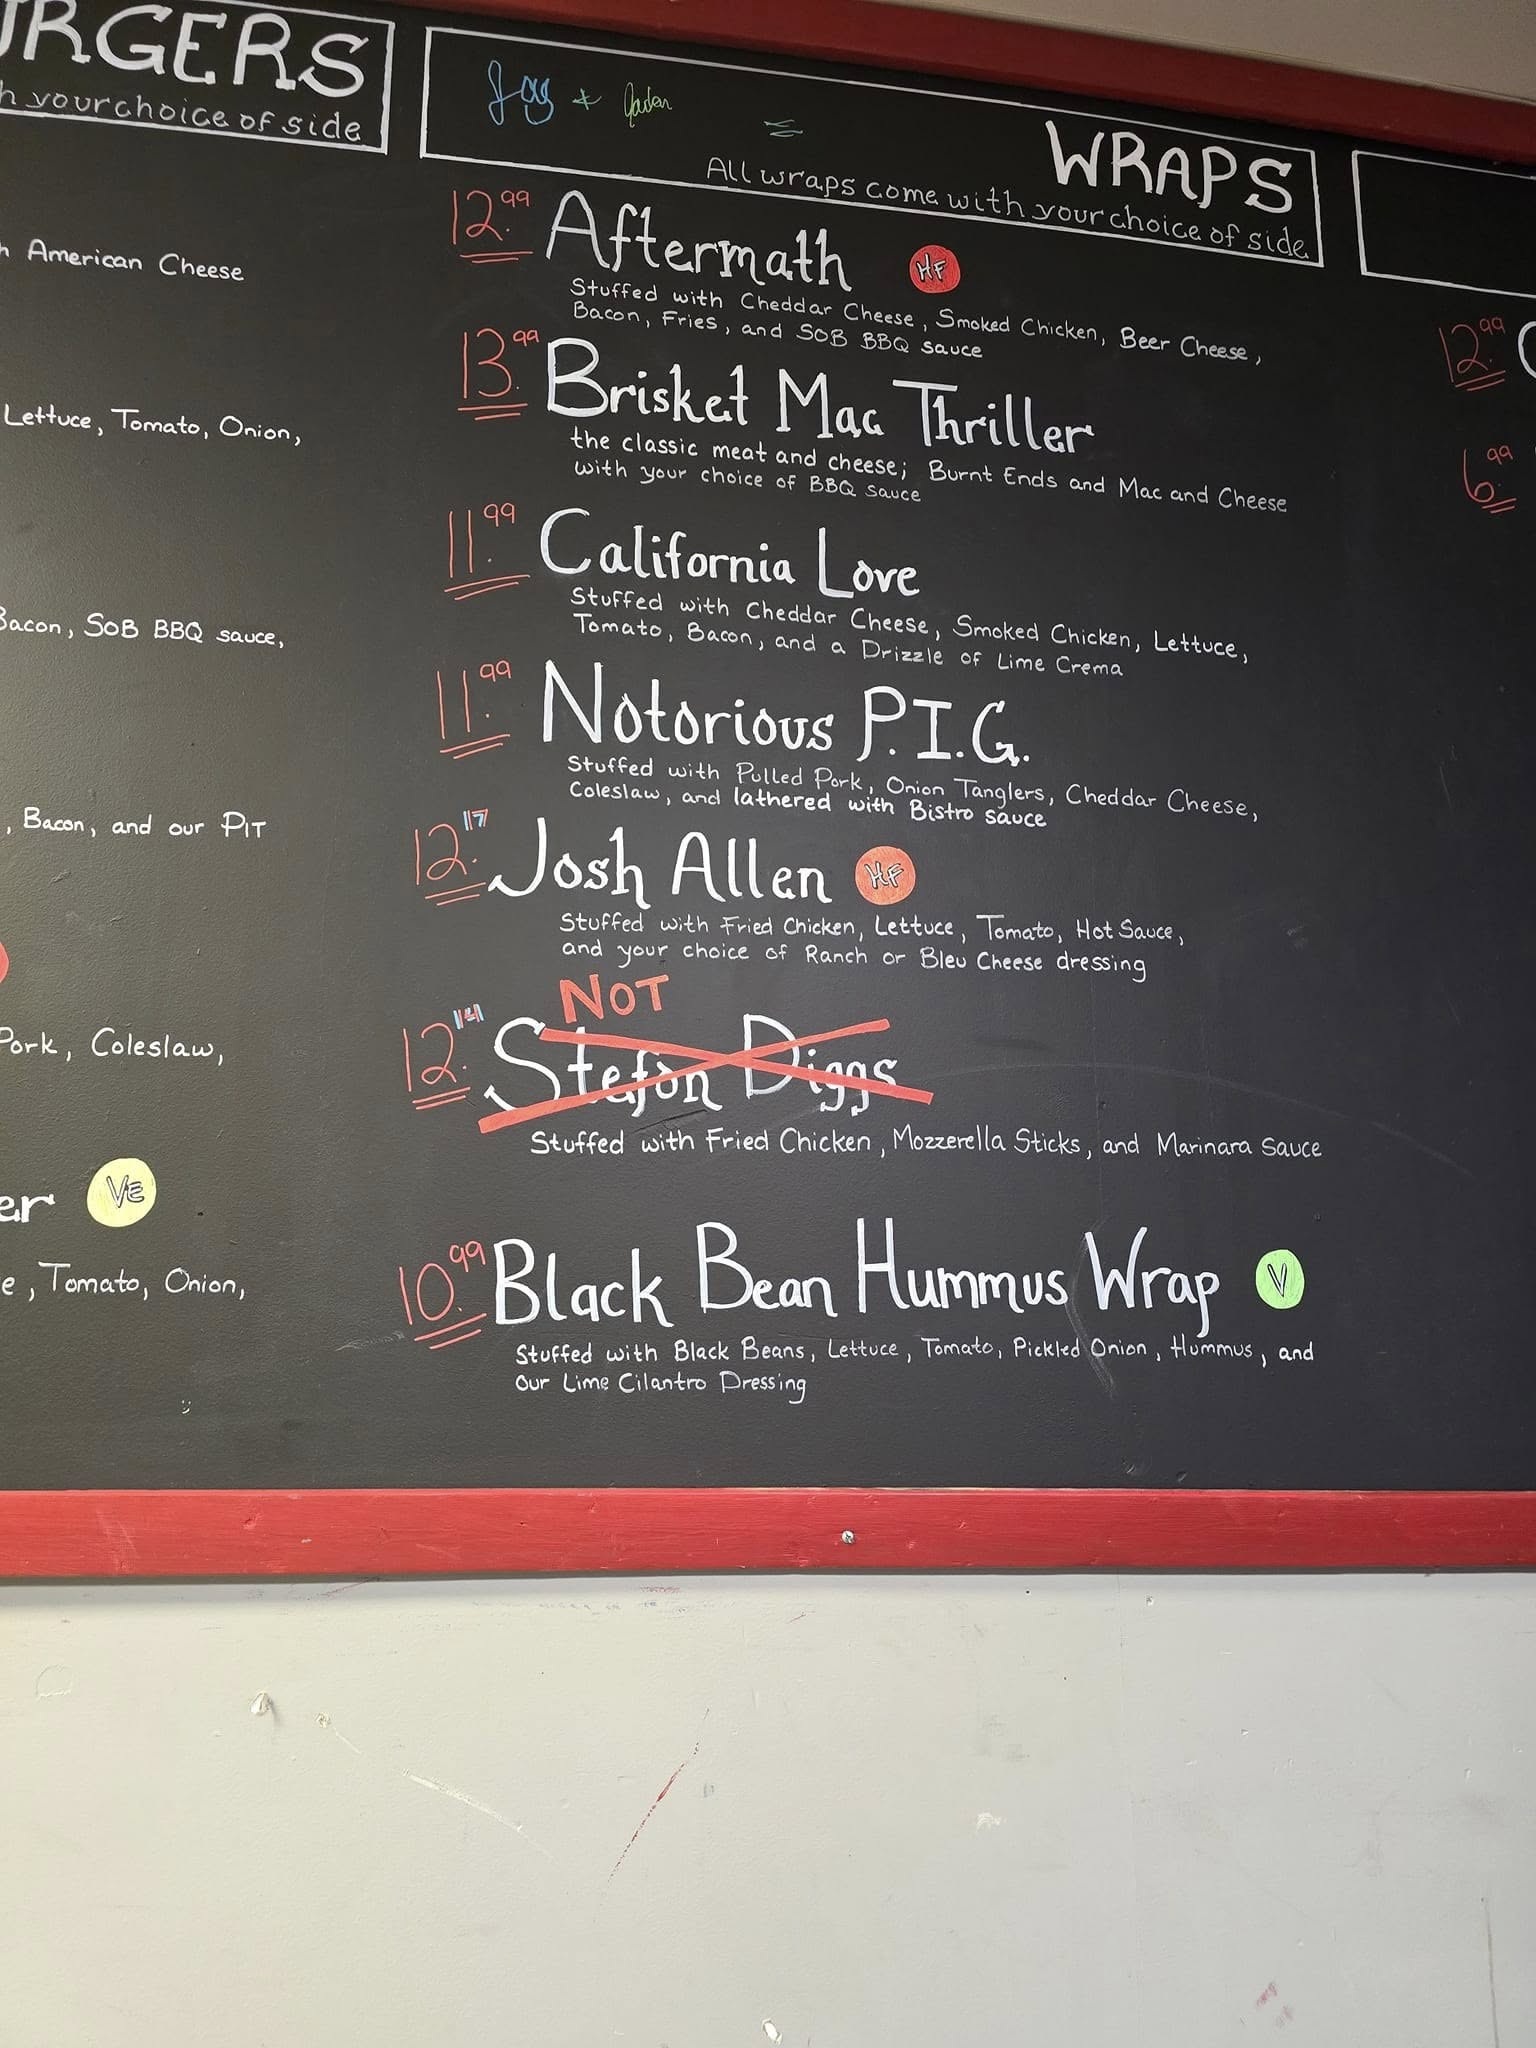 URGERS
h your choice of side
h American Cheese
Lettuce, Tomato, Onion,
Bacon, SOB BBQ sauce,
, Bacon, and our PIT
Pork, Coleslaw,
er VE
e, Tomato, Onion,
+ Jaden =
WRAPS
All wraps come with your choice of side
12.99 Aftermath HF
Stuffed with Cheddar Cheese, Smoked Chicken, Beer Cheese,
Bacon, Fries, and SOB BBQ sauce
13.99 Brisket Mac Thriller
the classic meat and cheese; Burnt Ends and Mac and Cheese
with your choice of BBQ sauce
11.99 California Love
Stuffed with Cheddar Cheese, Smoked Chicken, Lettuce,
Tomato, Bacon, and a Drizzle of Lime Crema
11.99 Notorious P.I.G.
Stuffed with Pulled Pork, Onion Tanglers, Cheddar Cheese,
Coleslaw, and lathered with Bistro sauce
12.17 Josh Allen HF
Stuffed with Fried Chicken, Lettuce, Tomato, Hot Sauce,
and your choice of Ranch or Bleu Cheese dressing
NOT
12.14 Stefon Diggs
Stuffed with Fried Chicken, Mozzerella Sticks, and Marinara Sauce
10.99 Black Bean Hummus Wrap V
Stuffed with Black Beans, Lettuce, Tomato, Pickled Onion, Hummus, and
Our Lime Cilantro Dressing
12.99
6.99